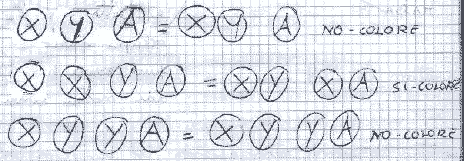 X Y A = X Y A NO-COLORE
X X Y A = X Y X A SI-COLORE
X Y Y A = X Y Y A NO-COLORE